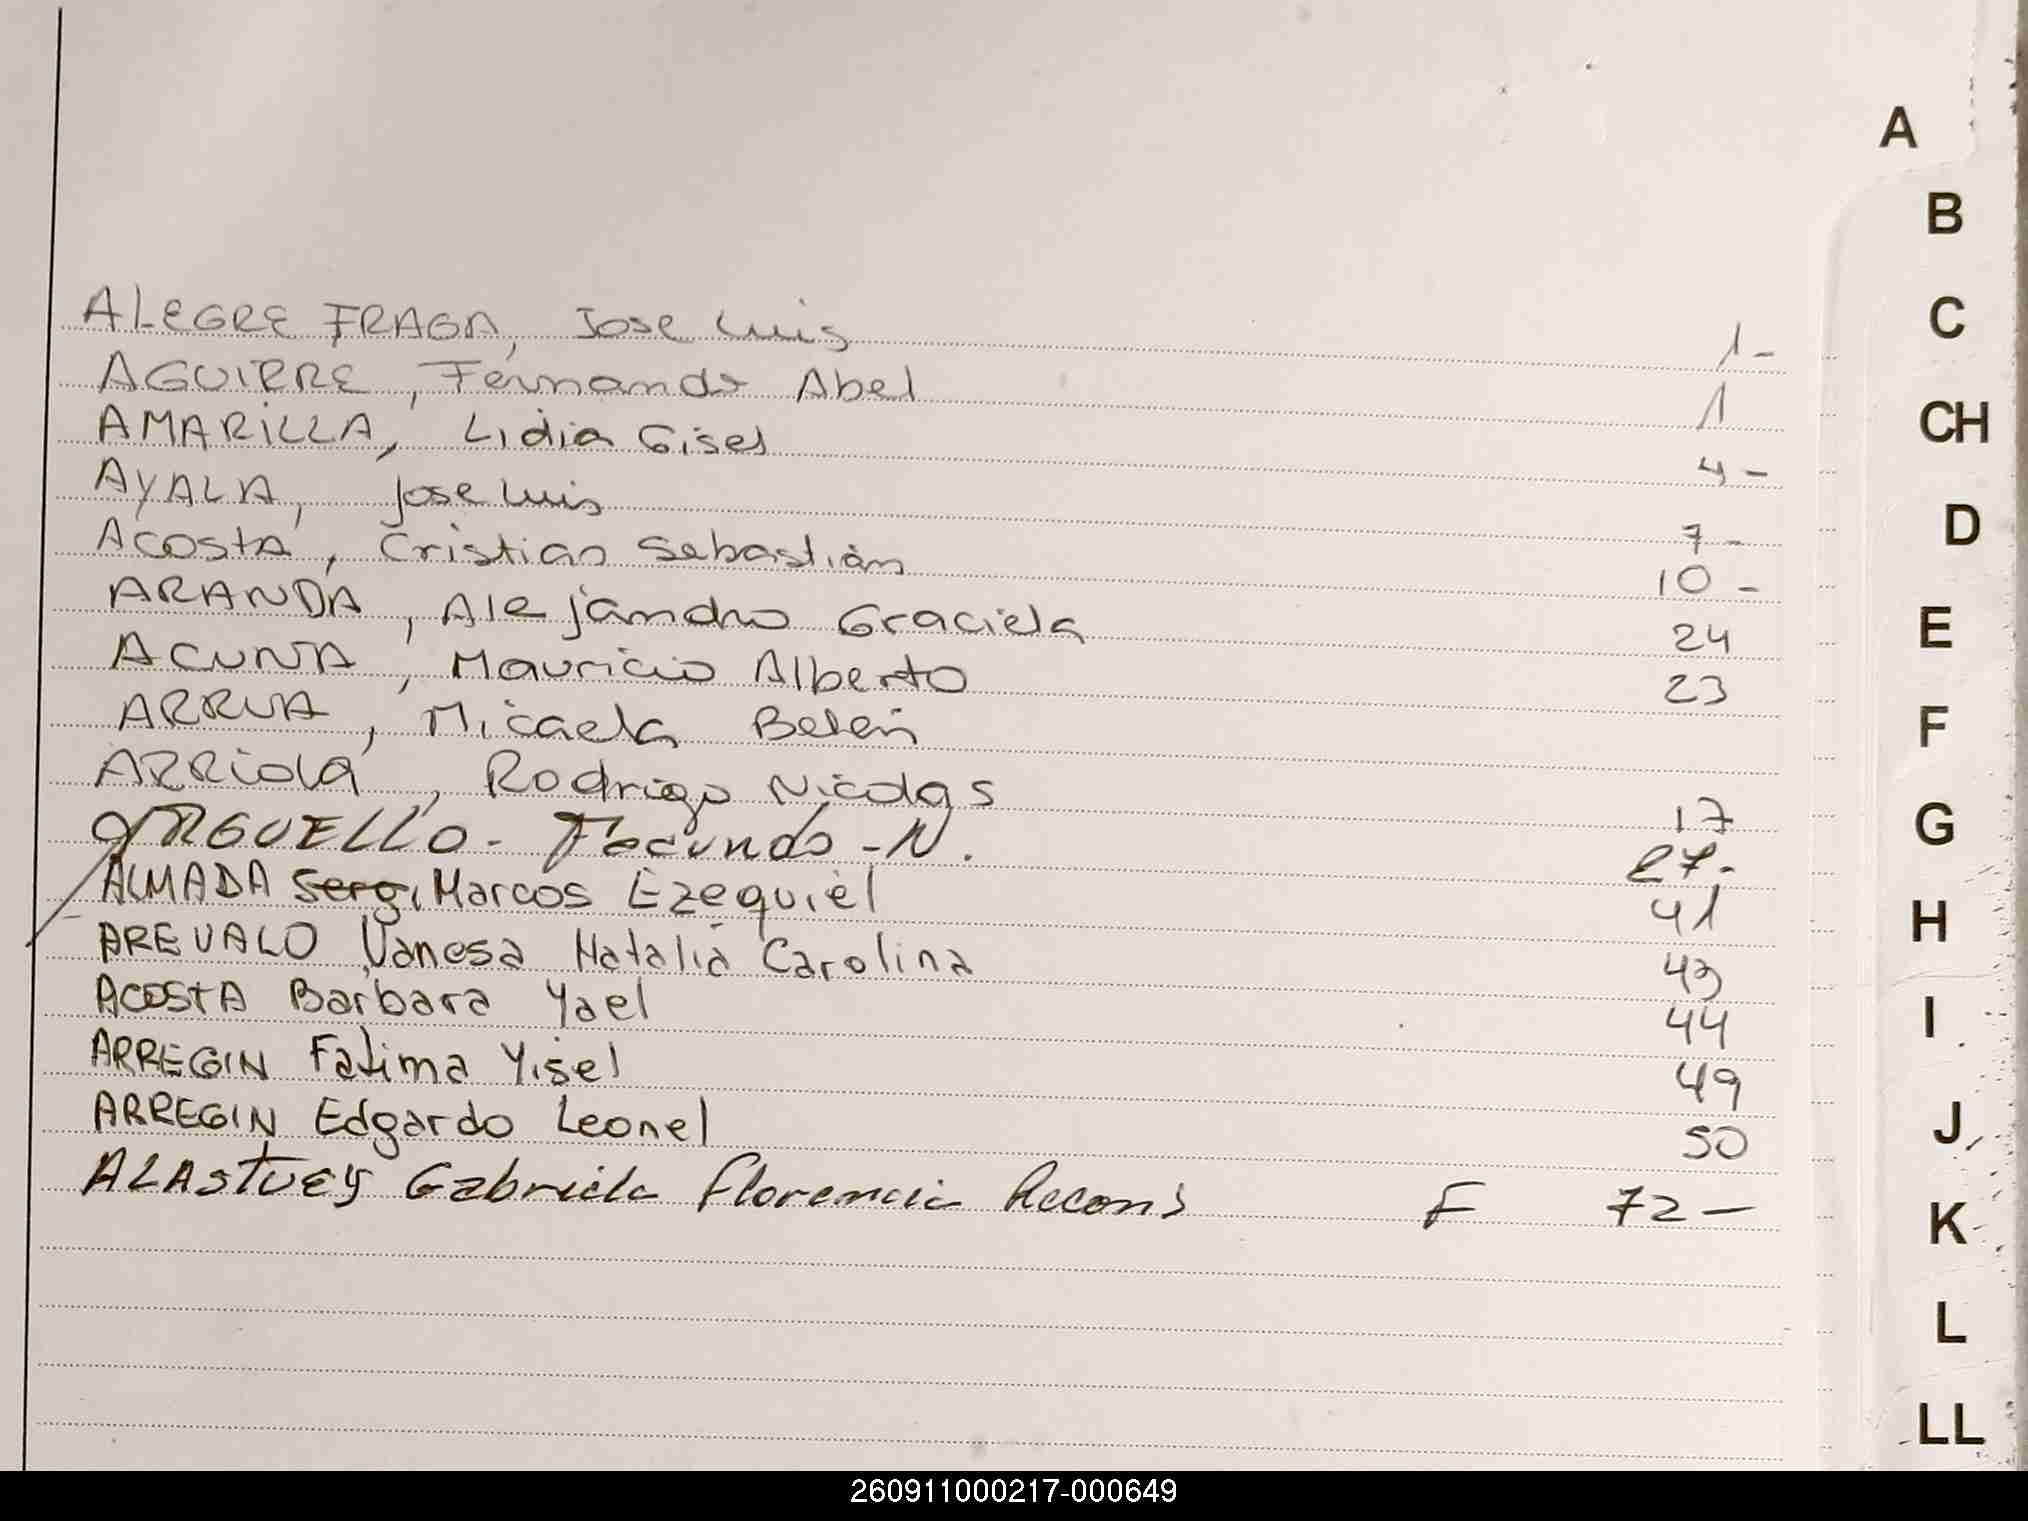 ALEGRE FRAGA, Jose Luis 1-
AGUIRRE, Fernando Abel 1
AMARILLA, Lidia Gisel 4-
AYALA, Jose Luis 7-
ACOSTA, Cristian Sebastián 10-
ARANDA, Alejandro Graciela 24
ACUNA, Mauricio Alberto 23
ARRUA, Micaela Belén
ARRIOLA, Rodrigo Nicolas 17
ARGUELLO - Facundo - N. 27-
ALMADA Sergi Marcos Ezequiel 41
AREVALO Vanesa Natalia Carolina 43
ACOSTA Barbara Yael 44
ARREGIN Fatima Yisel 49
ARREGIN Edgardo Leonel 50
ALASTUEY Gabriela Florencia F 72-
A
B
C
CH
D
E
F
G
H
I
J
K
L
LL
260911000217-000649